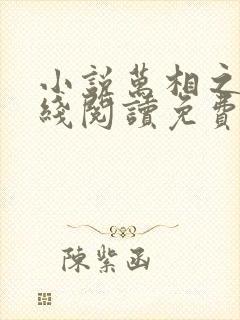 小説萬相之
綫閱讀免費
陳紫函